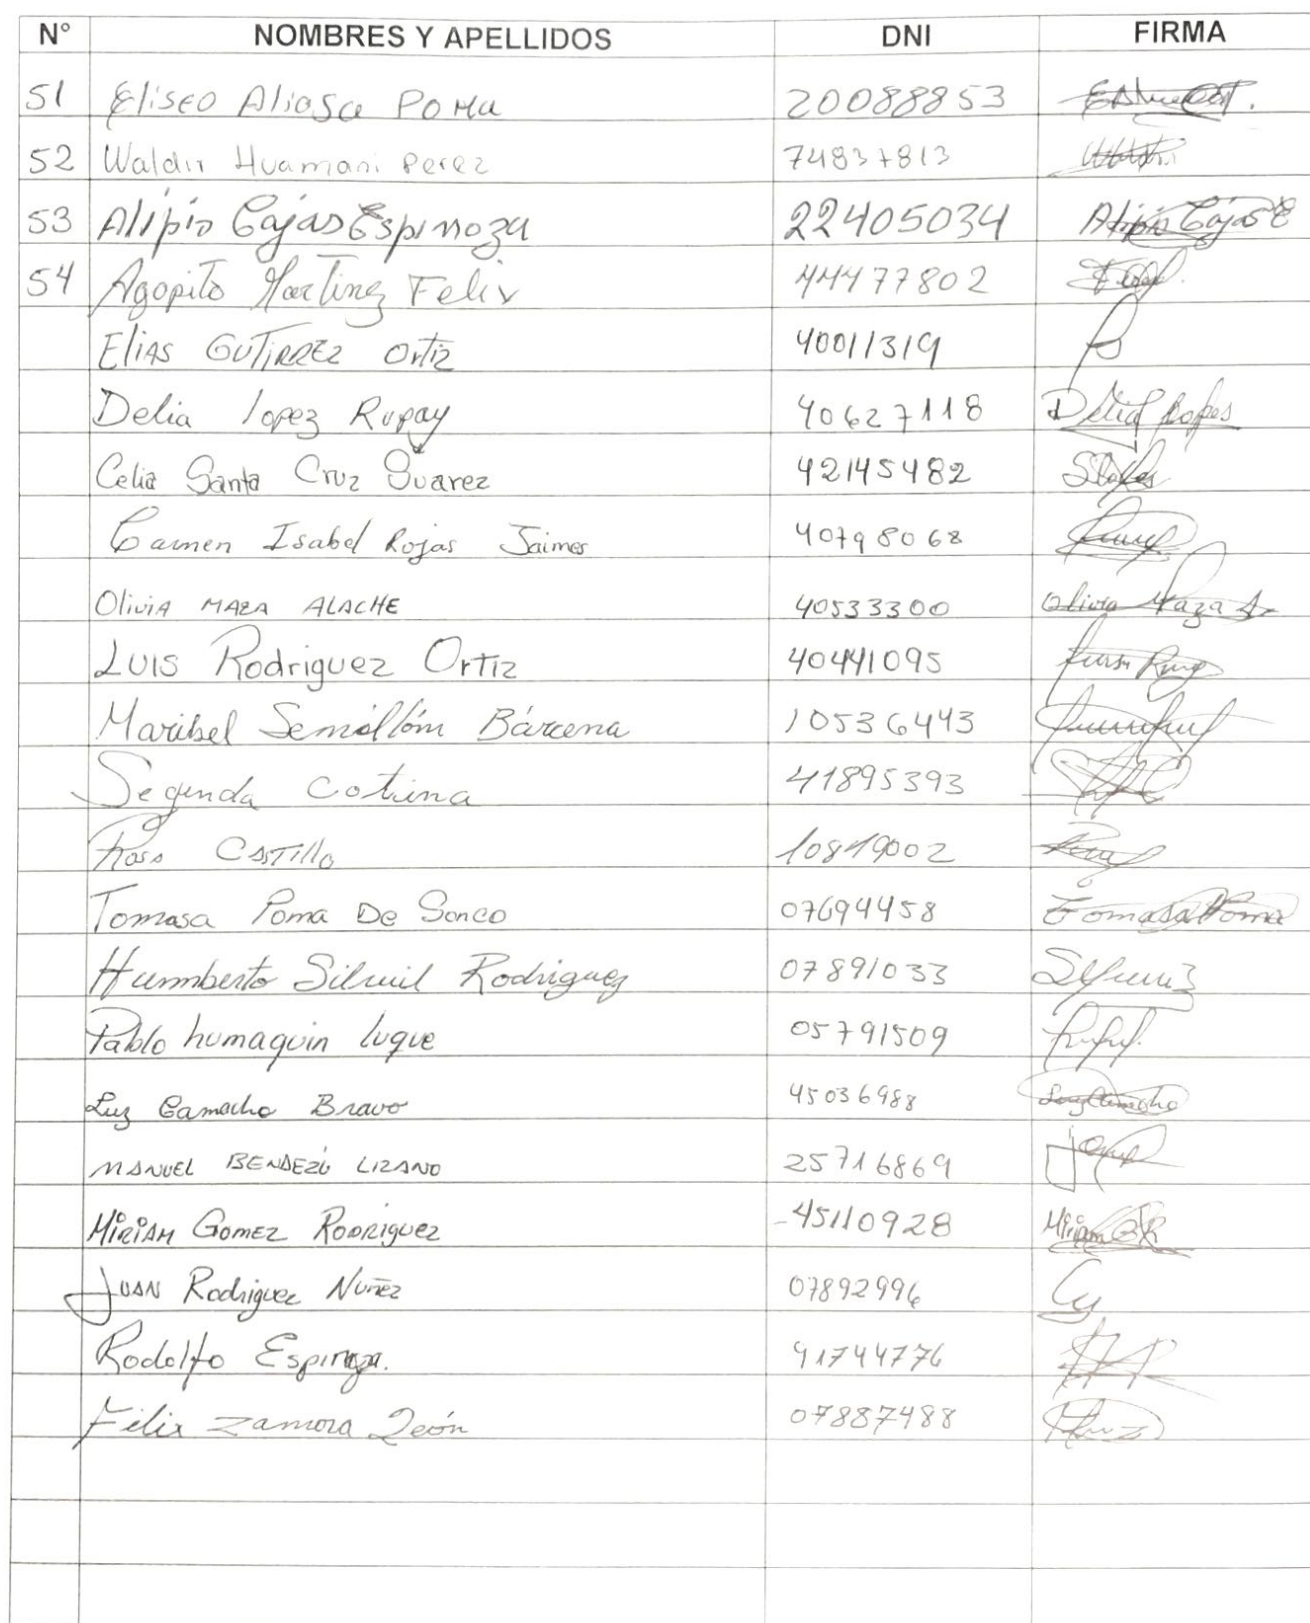 N° NOMBRES Y APELLIDOS DNI FIRMA
51 Eliseo Aliaga Poma 20088853
52 Waldir Huamani Perez 74837813
53 Alipio Cajas Espinoza 22405034 Alipio Cajas E
54 Agopito Martinez Felix 44477802
Elias GUTIRREZ Ortiz 40011319
Delia lopez Rupay 40627118 Delia lopes
Celia Santa Cruz Suarez 42145482
Carmen Isabel Rojas Jaimes 40798068
Olivia MAZA ALACHE 40533300 Olivia Maza A
Luis Rodriguez Ortiz 40441095
Maribel Semillóm Bárcena 10536443
Segunda Cotrina 41895393
Rosa CASTILLO 10819002
Tomasa Poma De Sonco 07694458 Tomasa Poma
Humberto Rodriguez 07891033
Pablo humaquin luque 05791509
Luz Camacho Bravo 45036988 Luz Camacho
MANUEL BENDEZÚ LIZANO 25716869
MIRIAM GOMEZ RODRIGUEZ 45110928 Miriam G R
JUAN Rodriguez Nuñez 07892996
Rodolfo Espinoza. 91744776
Félix Zamora León 07887488